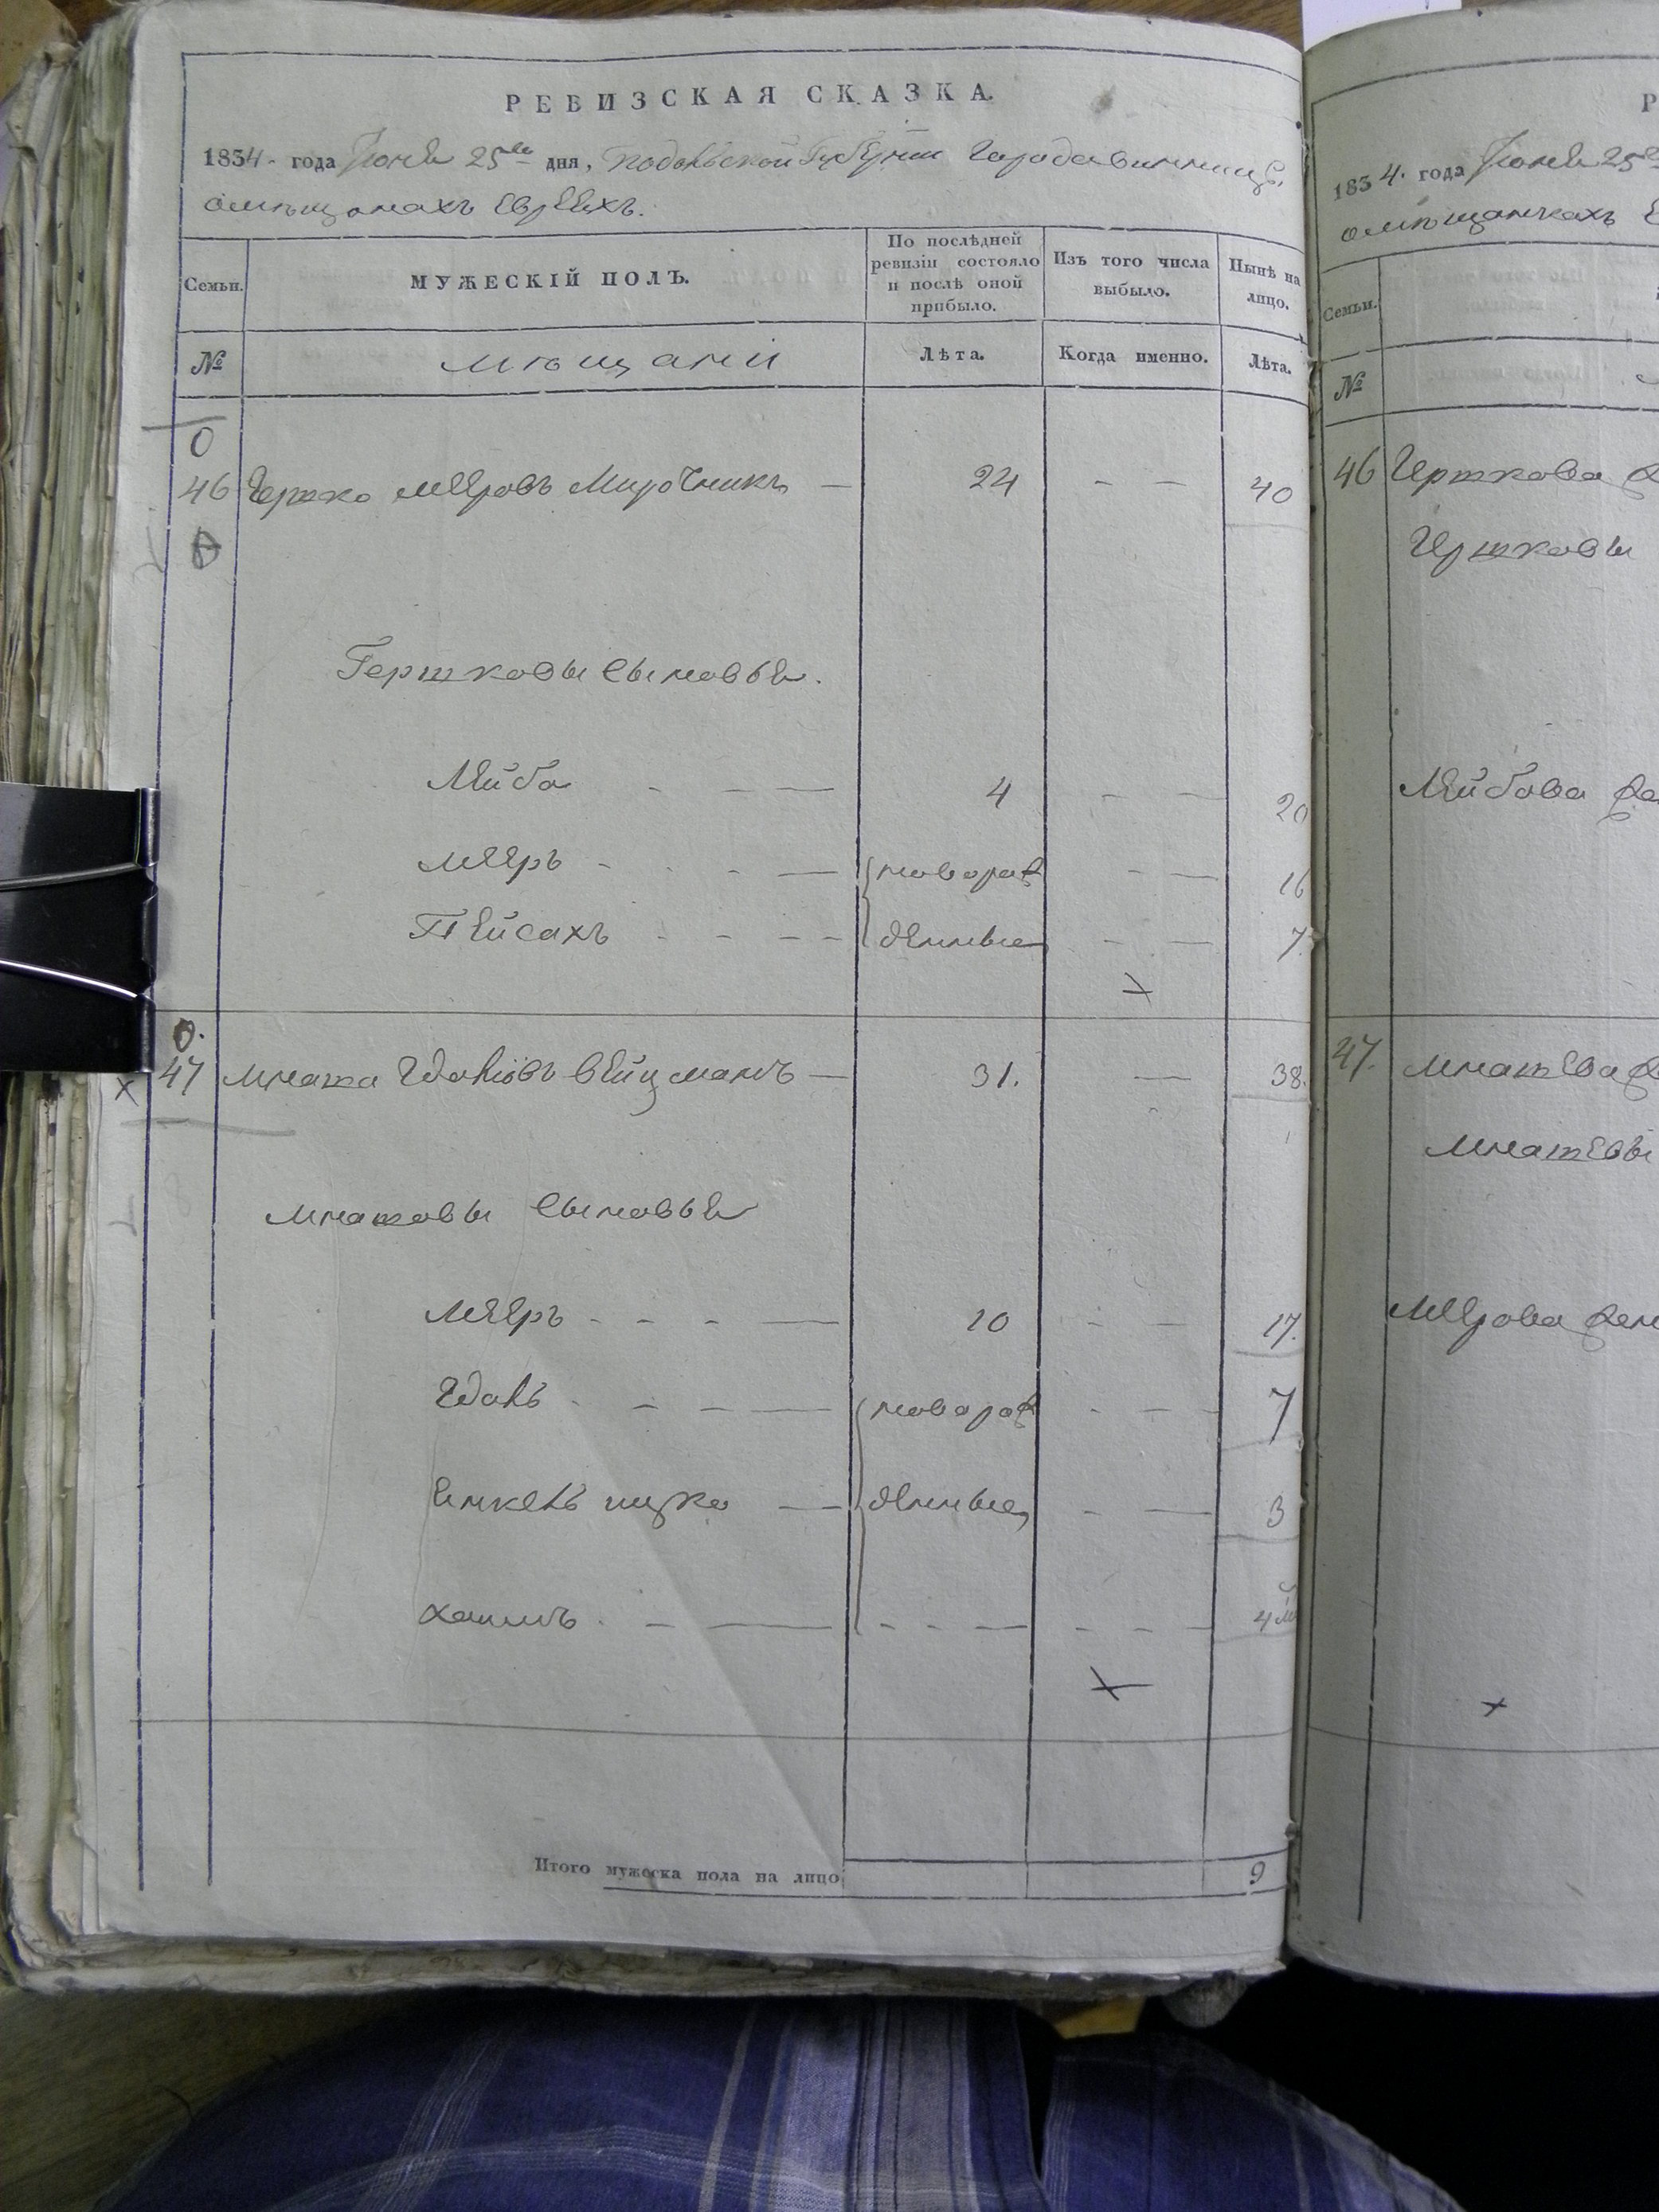 РЕВИЗСКАЯ СКАЗКА.
1834. года Іюня 25го дня, Подольской Губернии Города Винницы
о мѣщанахъ Евреяхъ.
Семьи.
МУЖЕСКІЙ ПОЛЪ.
По послѣдней ревизіи состояло и послѣ оной прибыло.
Изъ того числа выбыло.
Нынѣ на лицо.
№
мѣщани
Лѣта.
Когда именно.
Лѣта.
0
46 Гершко Мееровъ Мирочникъ — 24 - - 40
Гершковы Сыновья.
Лейба - - — 4 - — 20
Мееръ - - - — новорож - — 16
Пейсахъ - - - - денные - — 7.
0.
х 47 Мнаша Идаліовъ Вейцманъ — 31. — 38.
Мнашовы Сыновья
Мееръ - - - — 10 - — 17.
Идаль - - - — новорож - — 7
Янкель ицко — денные - — 3
Хаимъ - - — - - - — - - - 4 м
Итого мужеска пола на лицо 9
Р
1834. года Іюня 25го
о мѣщанкахъ Е
Семьи.
№
46 Гершкова
Гершковы
Лейбова же
47. Мнашева
Мнашевы
Меерова жен